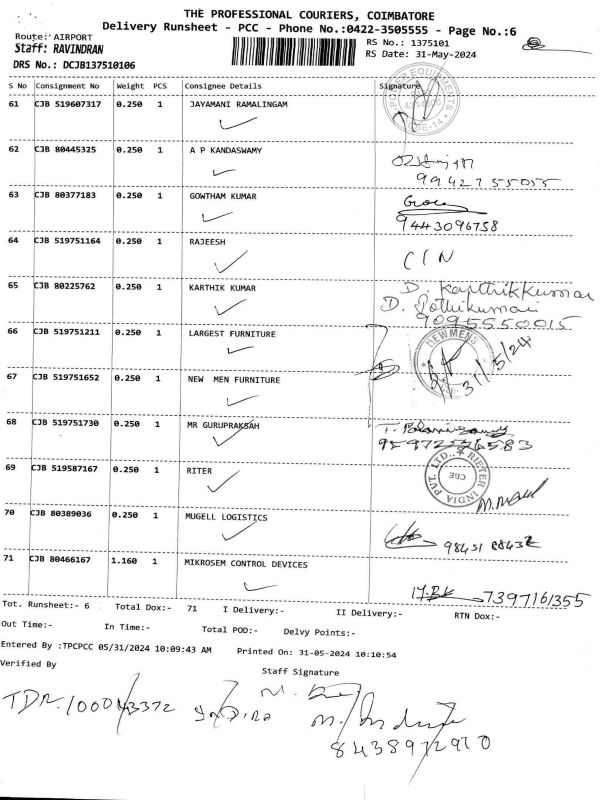 THE PROFESSIONAL COURIERS, COIMBATORE
Delivery Runsheet - PCC - Phone No.:0422-3505555 - Page No.:6
Route: AIRPORT
Staff: RAVINDRAN
RS No.: 1375101
RS Date: 31-May-2024
DRS No.: DCJB137510106
S No Consignment No Weight PCS Consignee Details Signature
61 CJB 519607317 0.250 1 JAYAMANI RAMALINGAM
POWER EQUIPMENTS
CBE-14
62 CJB 80445325 0.250 1 A P KANDASWAMY
9942755055
63 CJB 80377183 0.250 1 GOWTHAM KUMAR
9443096758
64 CJB 519751164 0.250 1 RAJEESH
65 CJB 80225762 0.250 1 KARTHIK KUMAR
D. Karthikkumar
D. Jothikumari
9095550015
66 CJB 519751211 0.250 1 LARGEST FURNITURE
NEWMENS
31/5/24
67 CJB 519751652 0.250 1 NEW MEN FURNITURE
68 CJB 519751730 0.250 1 MR GURUPRAKSAH
T. Palanisamy
69 CJB 519587167 0.250 1 RITER
RIETER INDIA PVT. LTD.,
CBE
70 CJB 80389036 0.250 1 MUGELL LOGISTICS
71 CJB 80466167 1.160 1 MIKROSEM CONTROL DEVICES
7397161355
Tot. Runsheet:- 6 Total Dox:- 71 I Delivery:- II Delivery:- RTN Dox:-
Out Time:- In Time:- Total POD:- Delvy Points:-
Entered By :TPCPCC 05/31/2024 10:09:43 AM Printed On: 31-05-2024 10:10:54
Verified By
Staff Signature
8438972920